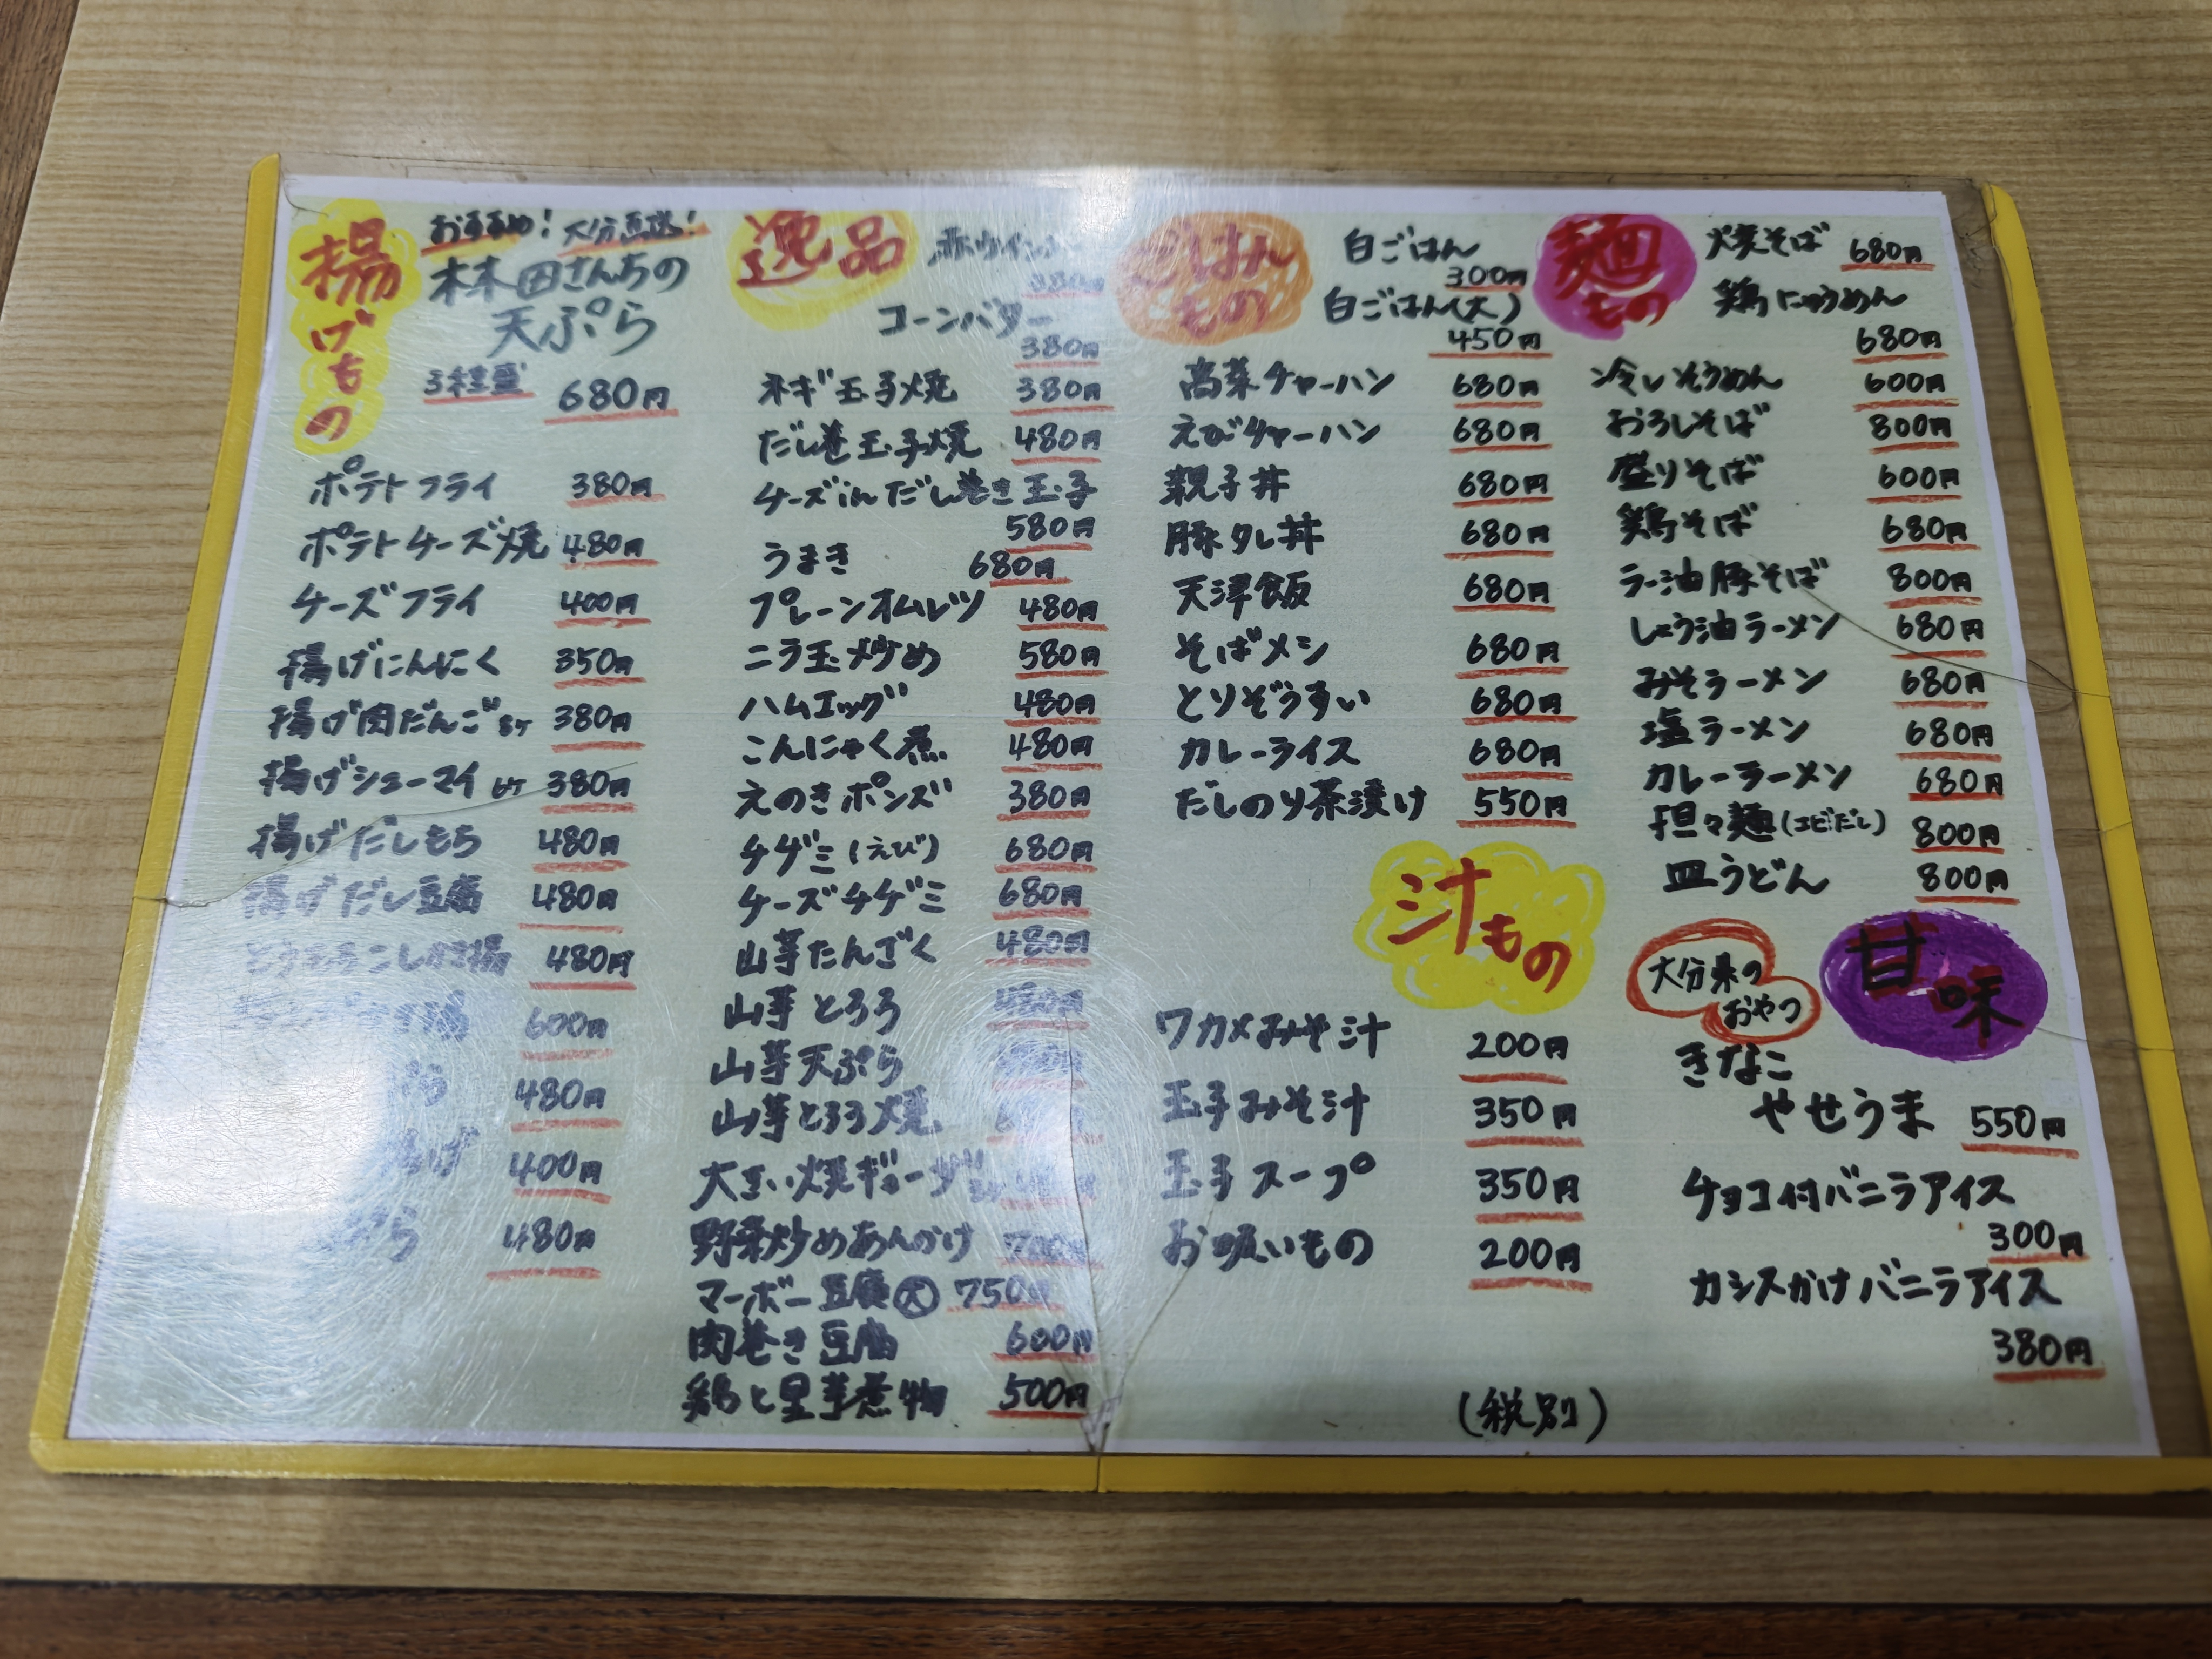 揚げもの
おすすめ！大分直送！
本田さんちの
天ぷら
3種盛 680円
ポテトフライ 380円
ポテトチーズ焼 480円
チーズフライ 400円
揚げにんにく 350円
揚げ肉だんご 8ケ 380円
揚げシューマイ 6ケ 380円
揚げだしもち 480円
揚げだし豆腐 480円
とうもろこしかき揚 480円
600円
480円
揚げ 400円
ぷら 480円
逸品
赤ウインナー
380円
コーンバター
380円
ネギ玉子焼 380円
だし巻玉子焼 480円
チーズinだし巻き玉子
580円
うまき 680円
プレーンオムレツ 480円
ニラ玉炒め 580円
ハムエッグ 480円
こんにゃく煮 480円
えのきポンズ 380円
チヂミ(えび) 680円
チーズチヂミ 680円
山芋たんざく 480円
山芋とろろ 480円
山芋天ぷら
山芋とろろ焼
大きい焼ギョーザ
野菜炒めあんかけ 700円
マーボー豆腐大 750円
肉巻き豆腐 600円
鶏と里芋煮物 500円
ごはんもの
白ごはん
300円
白ごはん(大)
450円
高菜チャーハン 680円
えびチャーハン 680円
親子丼 680円
豚タレ丼 680円
天津飯 680円
そばメシ 680円
とりぞうすい 680円
カレーライス 680円
だしのり茶漬け 550円
汁もの
ワカメみそ汁 200円
玉子みそ汁 350円
玉子スープ 350円
お吸いもの 200円
(税別)
麺もの
焼そば 680円
鶏にゅうめん
680円
冷しそうめん 600円
おろしそば 800円
盛りそば 600円
鶏そば 680円
ラー油豚そば 800円
しょう油ラーメン 680円
みそラーメン 680円
塩ラーメン 680円
カレーラーメン 680円
担々麺(エビだし) 800円
皿うどん 800円
甘味
大分県の
おやつ
きなこ
やせうま 550円
チョコ付バニラアイス
300円
カシスかけバニラアイス
380円